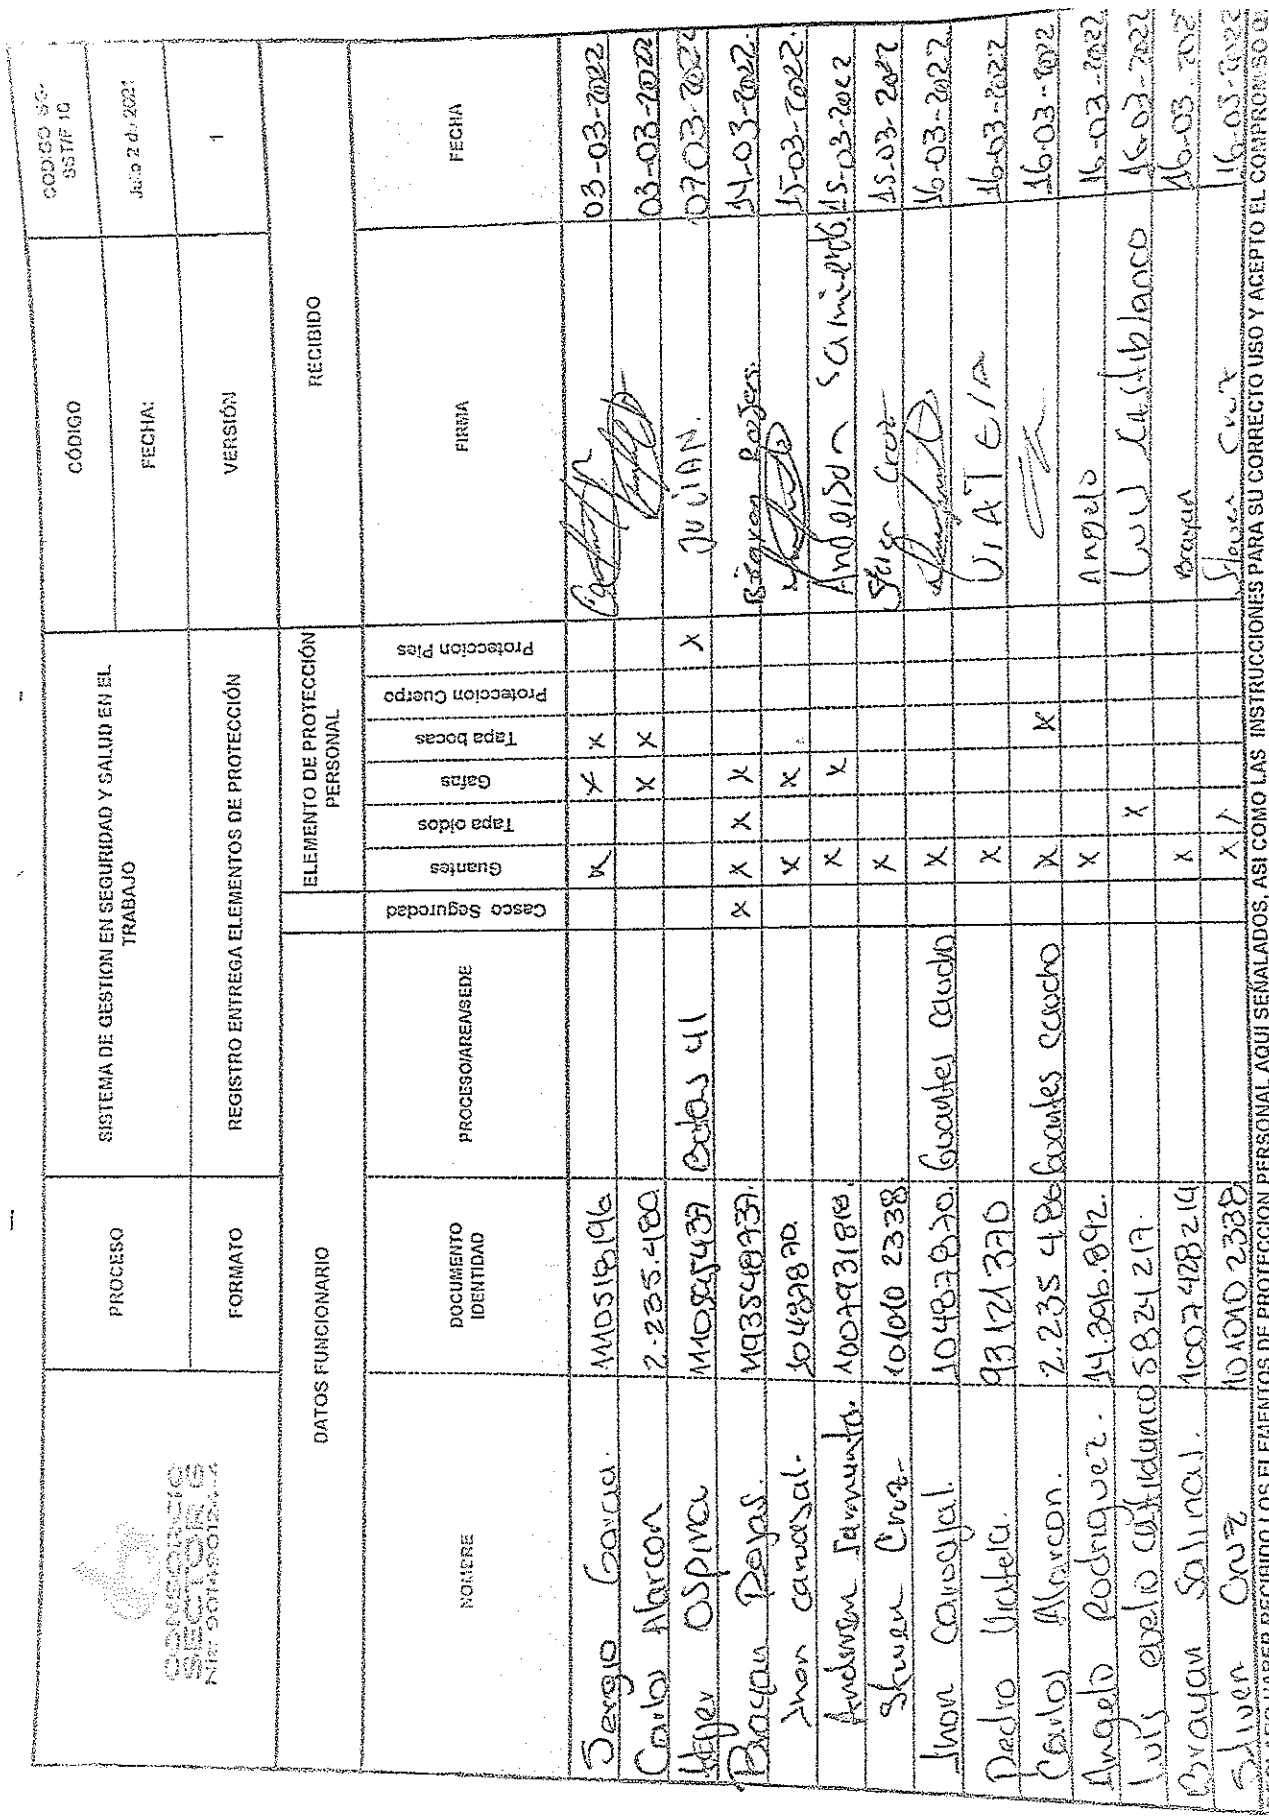 CONSORCIO
SECTOR 6
PROCESO
SISTEMA DE GESTION EN SEGURIDAD Y SALUD EN EL
TRABAJO
CÓDIGO
CODIGO SG-
SST/F 10
FECHA:
Julio 2 de 2021
FORMATO
REGISTRO ENTREGA ELEMENTOS DE PROTECCIÓN
VERSIÓN
1
DATOS FUNCIONARIO
ELEMENTO DE PROTECCIÓN
PERSONAL
RECIBIDO
NOMBRE
DOCUMENTO
IDENTIDAD
PROCESO/AREA/SEDE
Casco Seguredad
Guantes
Tapa oidos
Gafas
Tapa bocas
Proteccion Cuerpo
Proteccion Pies
FIRMA
FECHA
Sergio Garcia. 1105518196 X X X 03-03-2022
Carlos Alarcon 2.235.480 X X 03-03-2022
Ospina Botas 41 X JULIAN. 07-03-2022
Brayan Rojas. X X X X Brayan Rojas. 14-03-2022.
Jhon carvasal. 104787870 X X 15-03-2022.
Anderson Sarmiento. 1007931818. X X Anderson Sarmiento 15-03-2022
Stiven Cruz- 101010 2338. X Cruz 15-03-2022
Jhon Carvajal. 1048787870. Guantes caucho X 16-03-2022
Pedro Viatela. 93121370 X VIATELA 16-03-2022
Carlos Alarcon. 2.235 480 Guantes caucho X X 16-03-2022
Angelo Rodriguez. 14.396.892. X Angelo 16-03-2022
Luis evelio 5824217. X Luis Castiblanco 16-03-2022
Brayan Salinas. 1007428214 X Brayan 16-03-2022
Stiven Cruz 101010 2338 X X Stiven Cruz 16-03-2022
DECLARO HABER RECIBIDO LOS ELEMENTOS DE PROTECCION PERSONAL AQUI SEÑALADOS, ASI COMO LAS INSTRUCCIONES PARA SU CORRECTO USO Y ACEPTO EL COMPROMISO Q